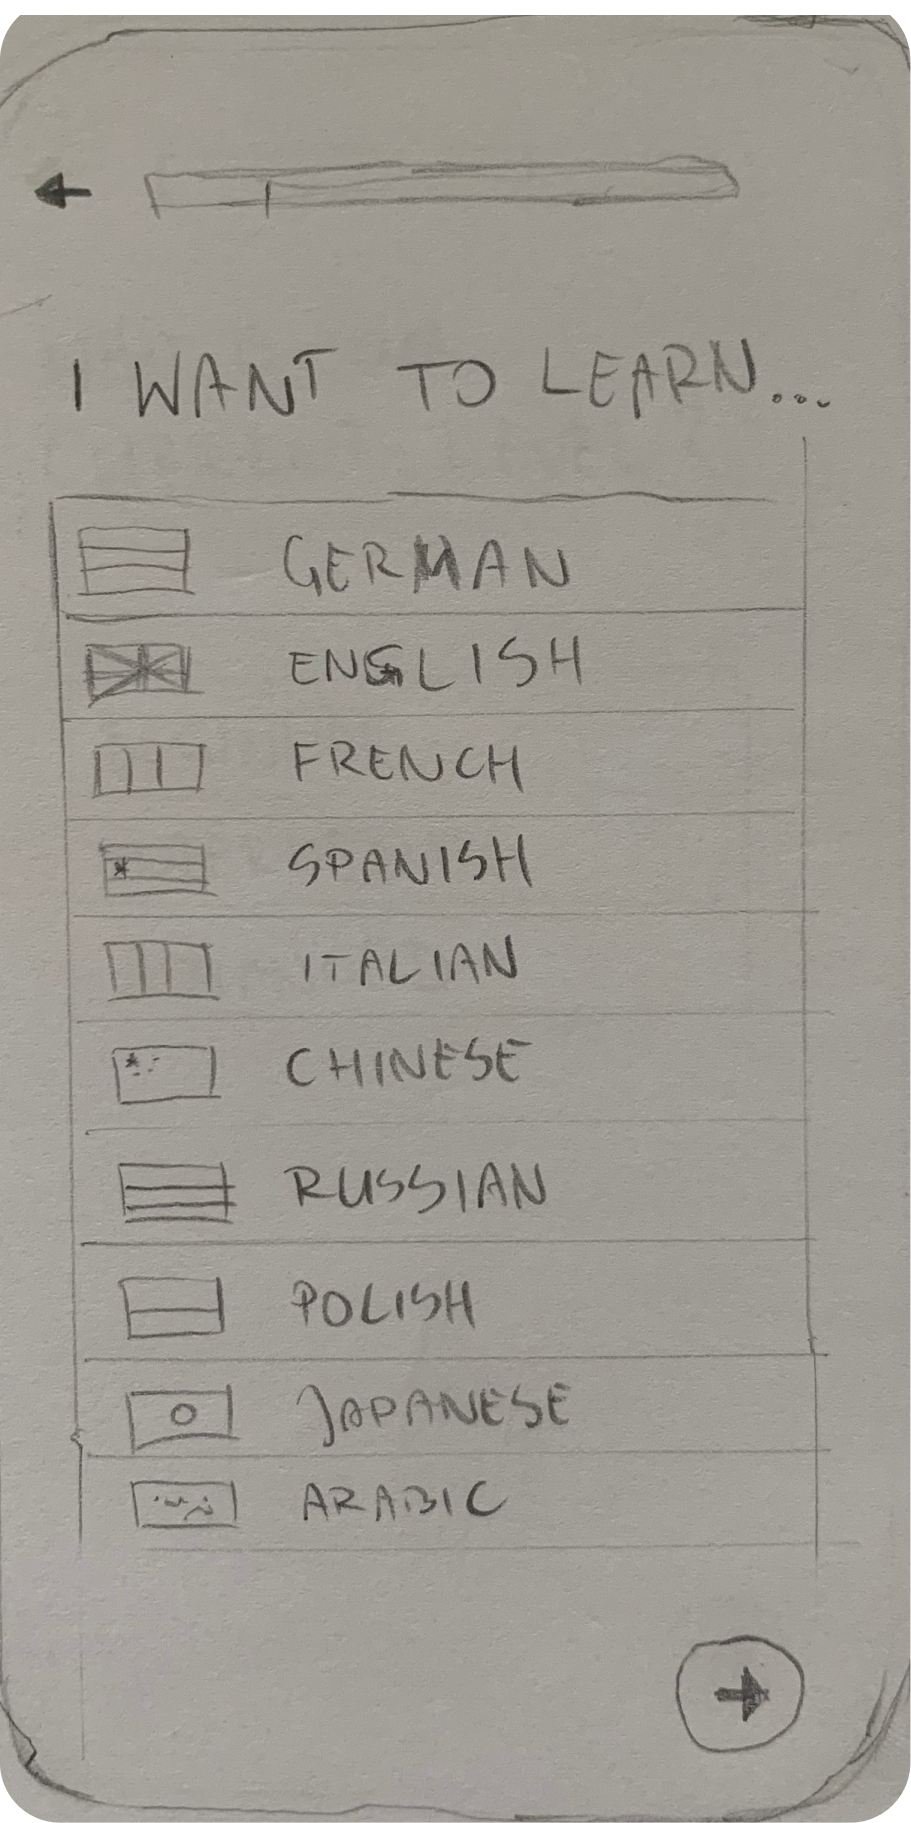 I WANT TO LEARN...
GERMAN
ENGLISH
FRENCH
SPANISH
ITALIAN
CHINESE
RUSSIAN
POLISH
JAPANESE
ARABIC